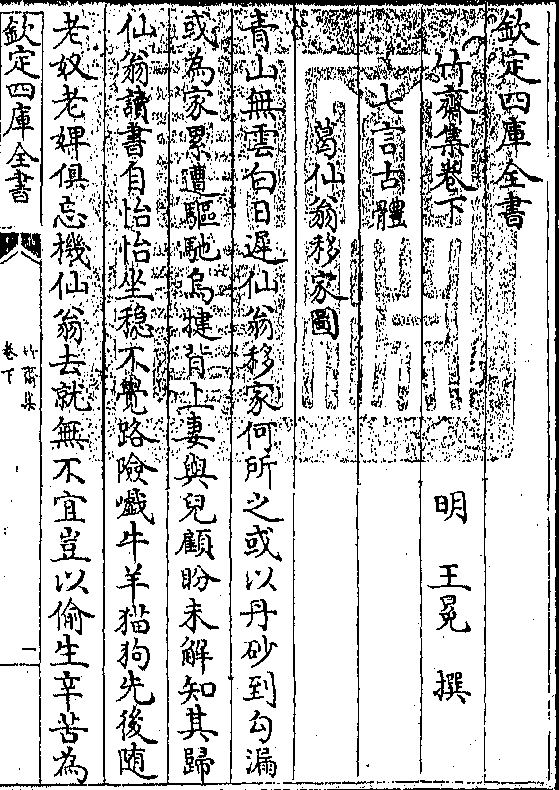 欽定四庫全書
竹齋集巻下
明 王冕 撰
七言古體
葛仙翁移家圖
青山無雲白日遲仙翁移家何所之或以丹砂到勾漏
或為家累遭驅馳烏犍背上妻與兒顧盼未解知其歸
仙翁讀書自怡怡坐穏不覺路險巇牛羊猫狗先後随
老奴老婢俱忘機仙翁去就無不宜豈以偷生辛苦為
欽定四庫全書
竹齋集
卷下
一